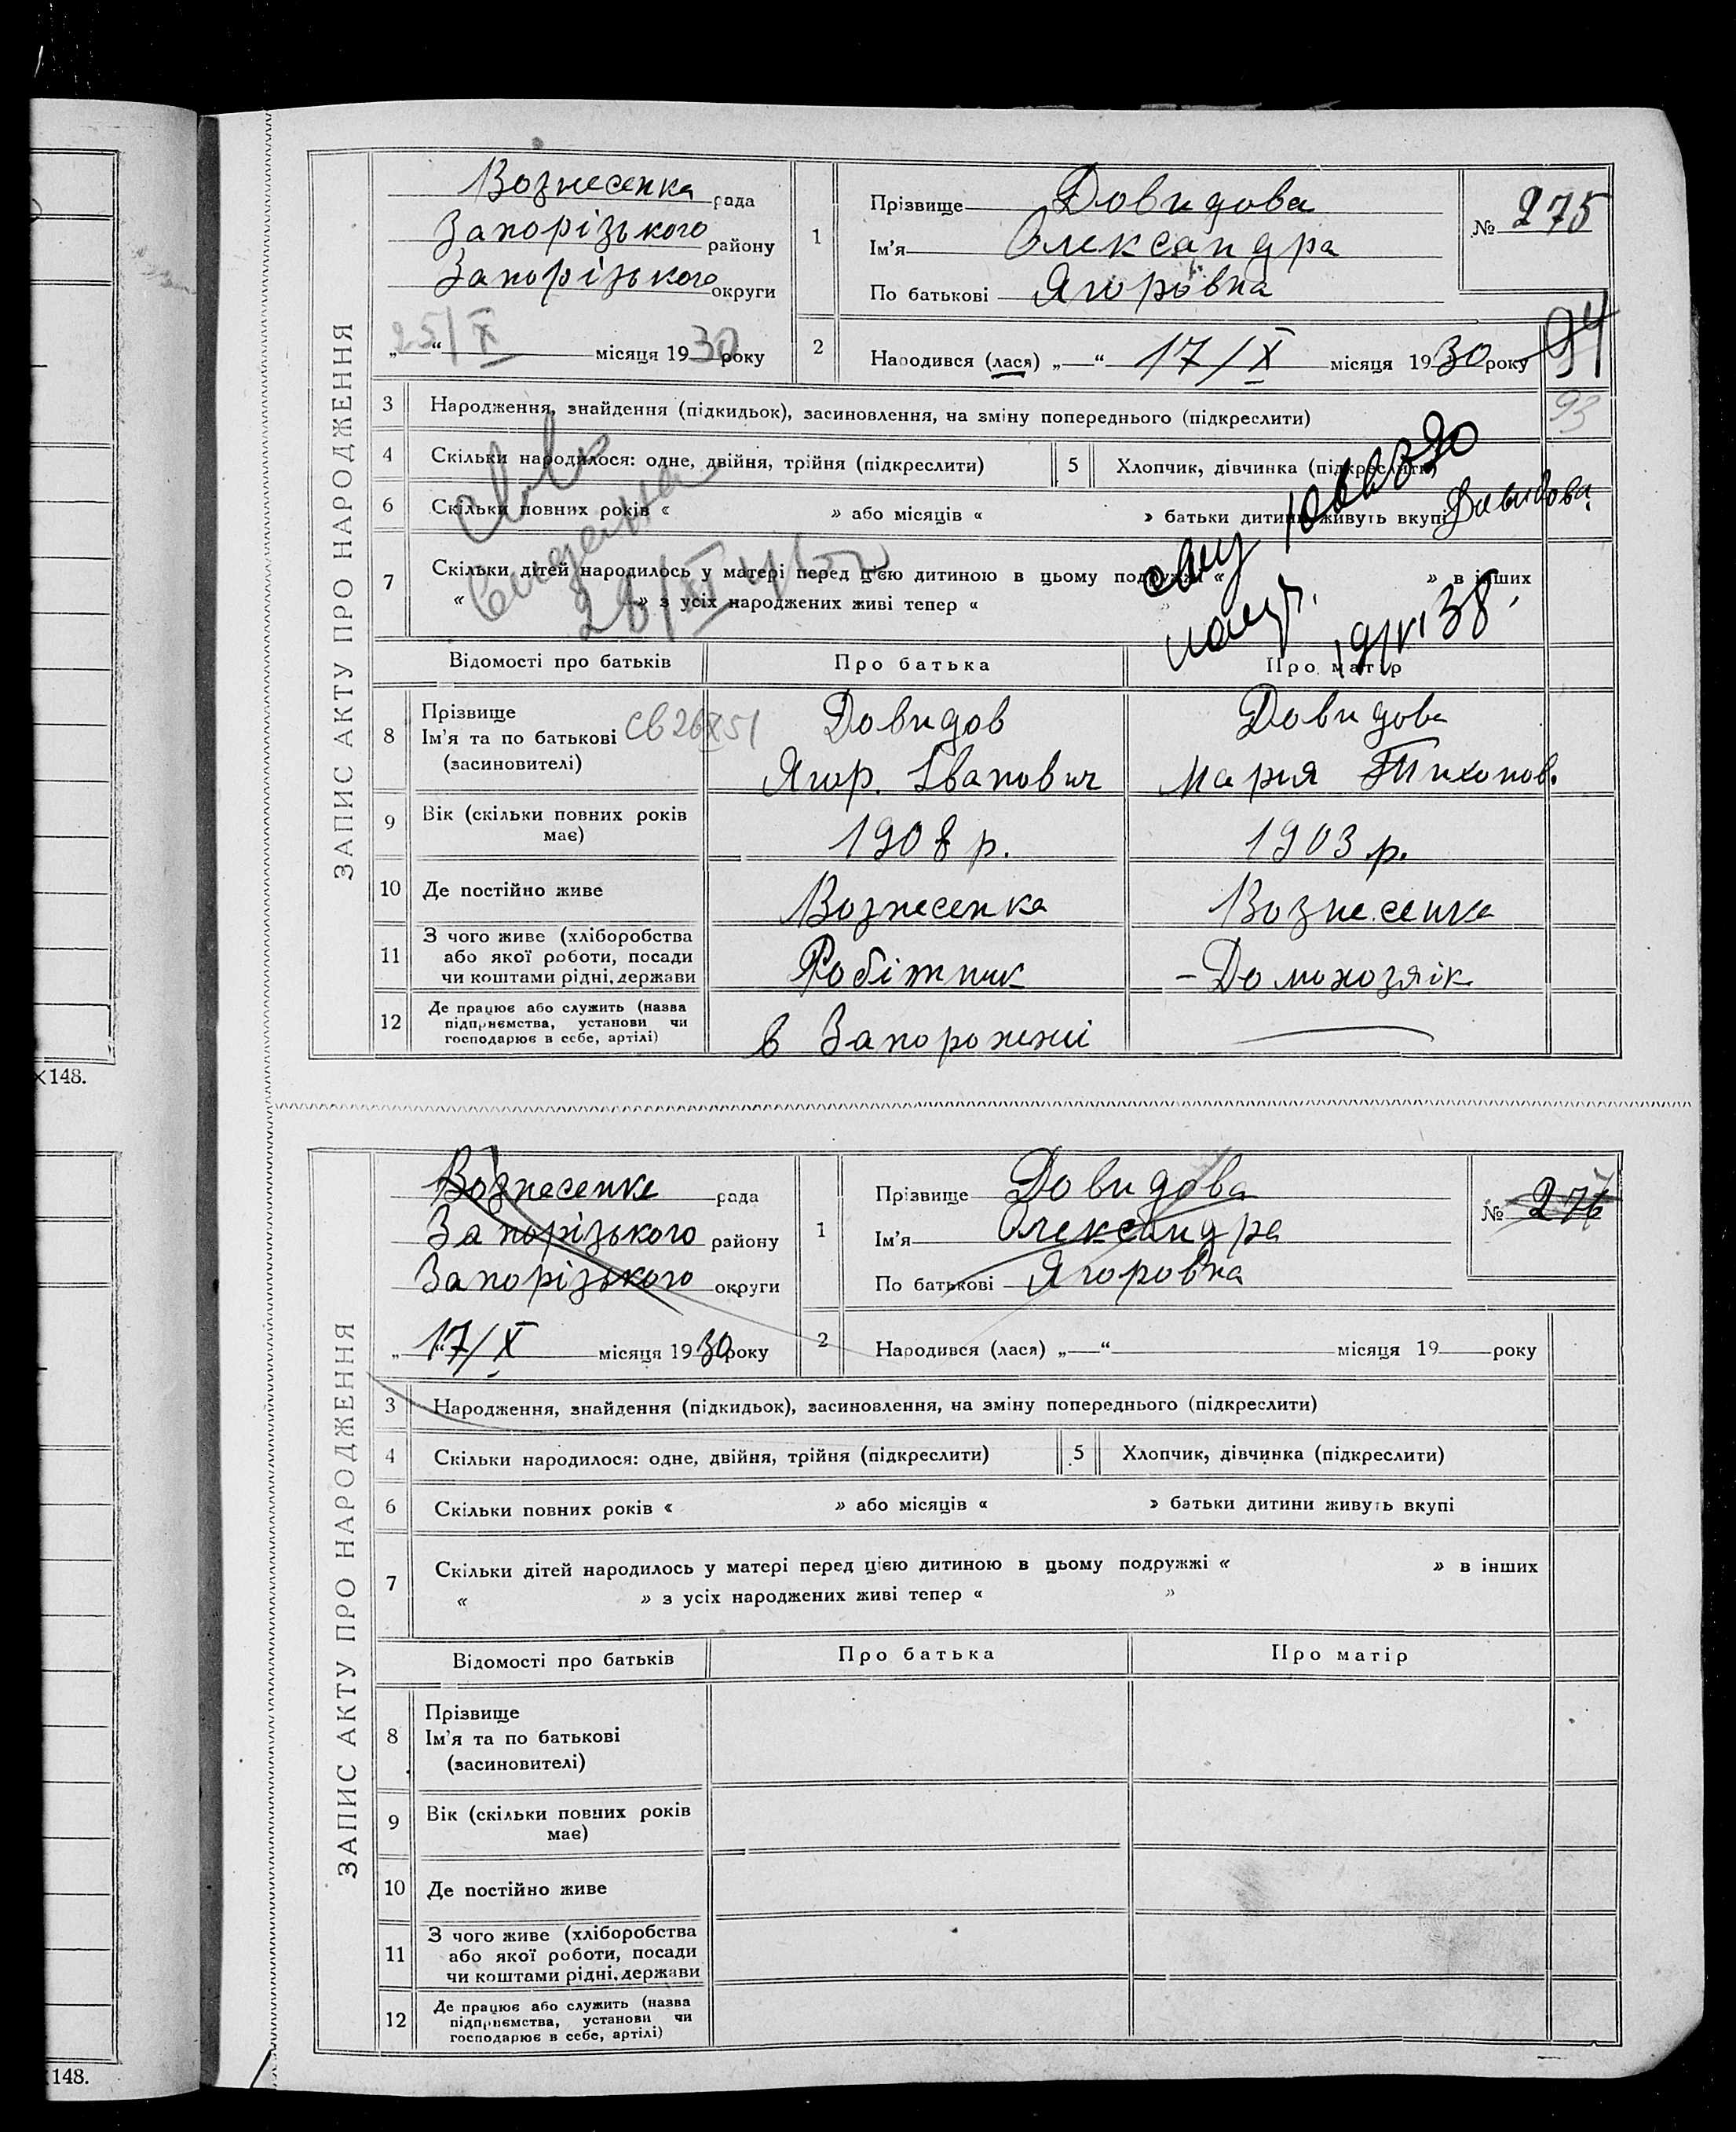 ЗАПИС АКТУ ПРО НАРОДЖЕННЯ
Вознесенка рада
Запорізького району
Запорізького округи
„25/X“ місяця 1930 року
1
Прізвище Довидова
Ім'я Олександра
По батькові Ягоровна
№ 275
2
Народився (лася) „—“ 17/X місяця 1930 року
94
93
3 Народження, знайдення (підкидьок), засиновлення, на зміну попереднього (підкреслити)
4 Скільки народилося: одне, двійня, трійня (підкреслити)
5 Хлопчик, дівчинка (підкреслити)
6 Скільки повних років « » або місяців « » батьки дитини живуть вкупі
Давидова
7 Скільки дітей народилось у матері перед цією дитиною в цьому подружжі « » в інших
« » з усіх народжених живі тепер « »
Відомості про батьків Про батька Про матір
8 Прізвище
Ім'я та по батькові
(засиновителі)
св 26 X 51
Довидов
Ягор. Іванович
Довидова
Мария Тихонов.
9 Вік (скільки повних років має)
1908 р.
1903 р.
10 Де постійно живе
Вознесенка
Вознесенка
11 З чого живе (хліборобства
або якої роботи, посади
чи коштами рідні, держави
Робітник
– Домохозяік
12 Де працює або служить (назва
підприємства, установи чи
господарює в себе, артілі)
в Запорожжі
×148.
ЗАПИС АКТУ ПРО НАРОДЖЕННЯ
Вознесенке рада
Запорізького району
Запорізького округи
„17/X“ місяця 1930 року
1
Прізвище Довидова
Ім'я Олександра
По батькові Ягоровна
№ 276
2
Народився (лася) „—“ місяця 19 року
3 Народження, знайдення (підкидьок), засиновлення, на зміну попереднього (підкреслити)
4 Скільки народилося: одне, двійня, трійня (підкреслити)
5 Хлопчик, дівчинка (підкреслити)
6 Скільки повних років « » або місяців « » батьки дитини живуть вкупі
7 Скільки дітей народилось у матері перед цією дитиною в цьому подружжі « » в інших
« » з усіх народжених живі тепер « »
Відомості про батьків Про батька Про матір
8 Прізвище
Ім'я та по батькові
(засиновителі)
9 Вік (скільки повних років
має)
10 Де постійно живе
11 З чого живе (хліборобства
або якої роботи, посади
чи коштами рідні, держави
12 Де працює або служить (назва
підприємства, установи чи
господарює в себе, артілі)
148.